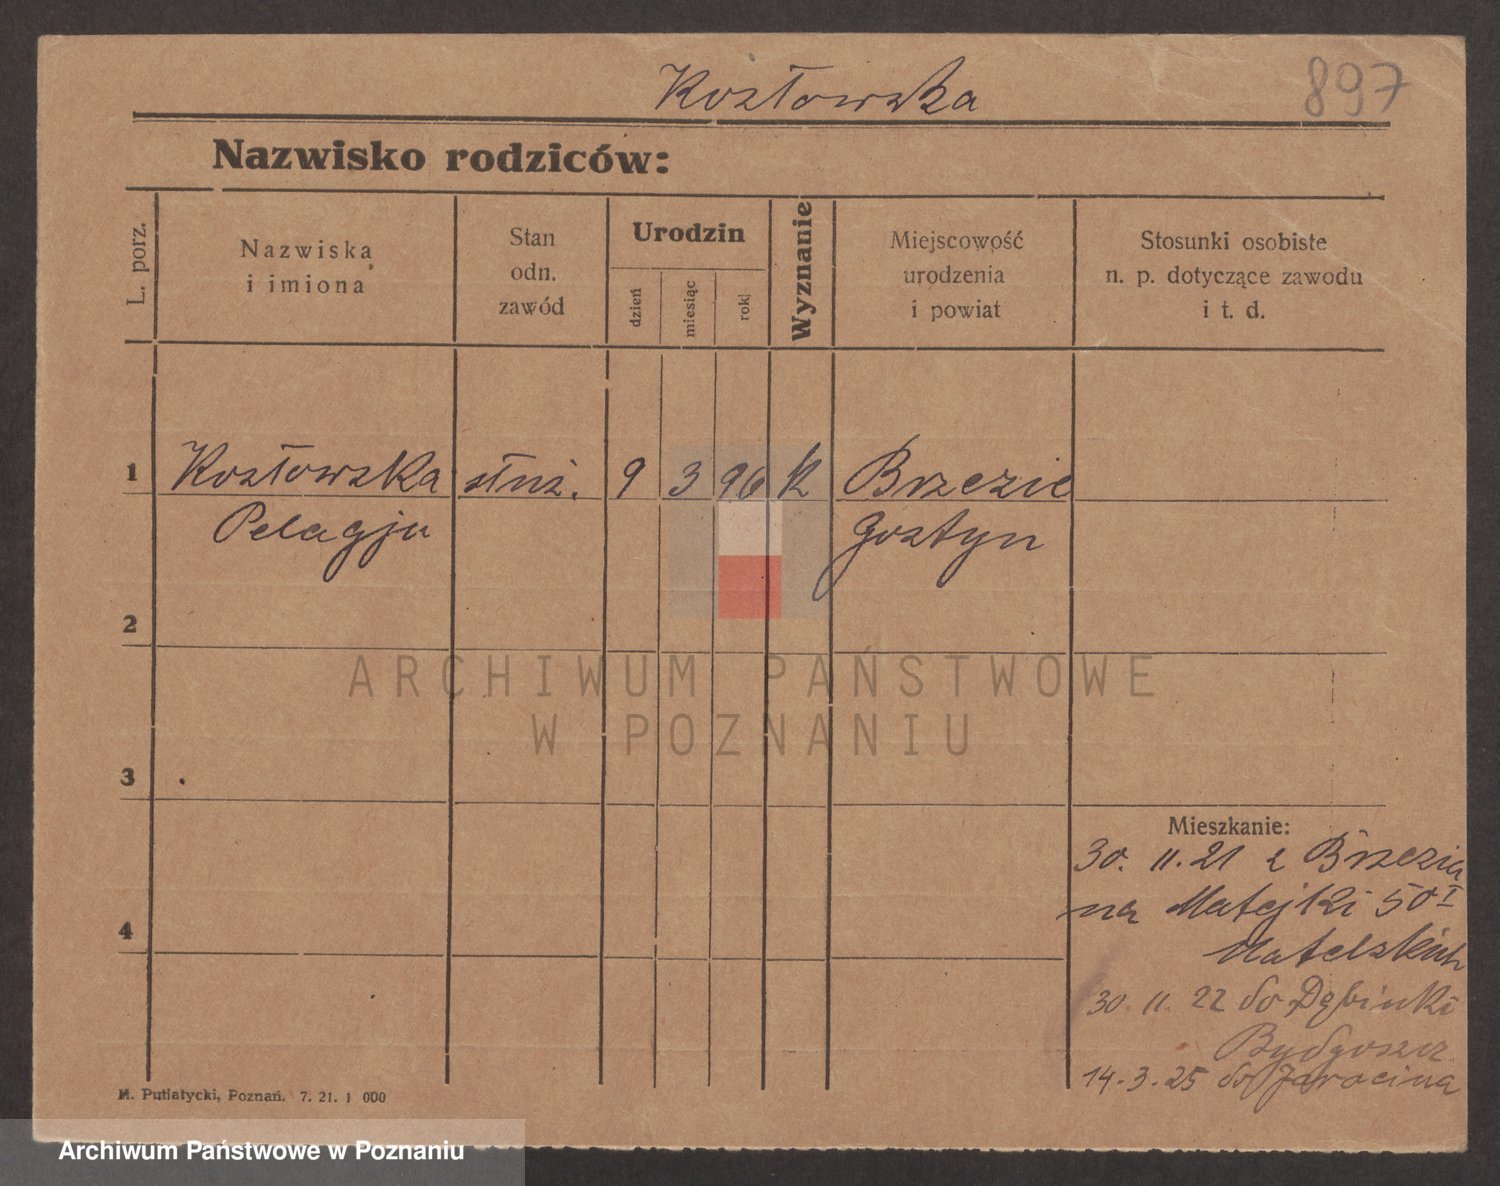 Kozłowska
897
Nazwisko rodziców:
L. porz.
Nazwiska
i imiona
Stan
odn.
zawód
Urodzin
dzień
miesiąc
rok
Wyznanie
Miejscowość
urodzenia
i powiat
Stosunki osobiste
n. p. dotyczące zawodu
i t. d.
1 Kozłowska służ. 9 3 96 k Brzezie
Pelagja Gostyn
2
ARCHIWUM PAŃSTWOWE
W POZNANIU
3
Mieszkanie:
30. 11. 21 z Brzezia
na Matejki 50 I
4
30. 11. 22 do Dębinki
Bydgoszcz
14. 3. 25 do Jarocina
M. Putiatycki, Poznań. 7. 21. 1 000
Archiwum Państwowe w Poznaniu